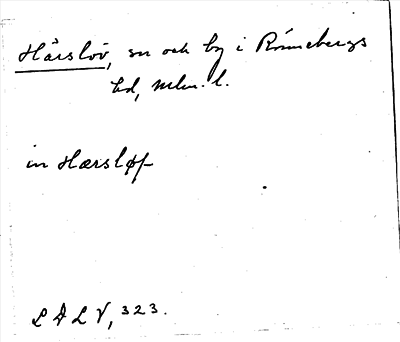 Hårslöv, sn och by i Rönnebergs
hd, Mlm. l.
in Hærsløf
LDLV, 323.